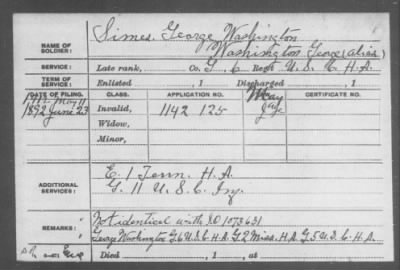 NAME OF SOLDIER: Simes, George Washington
Washington George (alias)
SERVICE: Late rank, Co. G, 6 Regt U. S. C. H. A.
TERM OF SERVICE: Enlisted , 1 Discharged , 1
DATE OF FILING. CLASS. APPLICATION NO. CERTIFICATE NO.
1892 June 23 Invalid, 1142 125
Widow,
Minor,
ADDITIONAL SERVICES: E. 1 Tenn. H. A.
G. 11 U. S. C. Inf.
REMARKS: Not identical with S.O 1073631
George Washington G 6 U.S.C.H.A. G 2 Miss. H.A. G 5 U.S.C.H.A.
Died , 1 , at